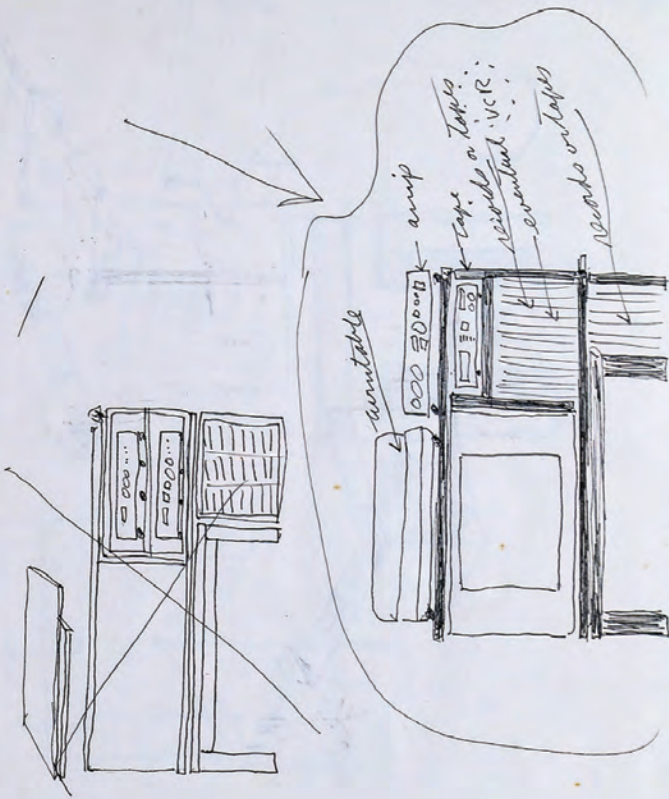 turntable
← amp
← tape
records or tapes
eventual VCR
records or tapes